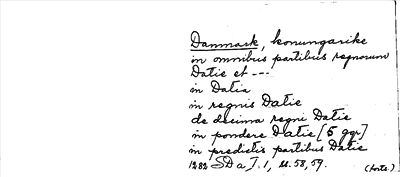 Danmark, konungarike
in omnibus partibus regnorum
Datie et ---
in Datia
in regnis Datie
de decima regni Datie
in pondere Datie [5 ggr]
in predictis partibus Datie
1282 SD a I. 1, s. 58, 59.
(forts.)